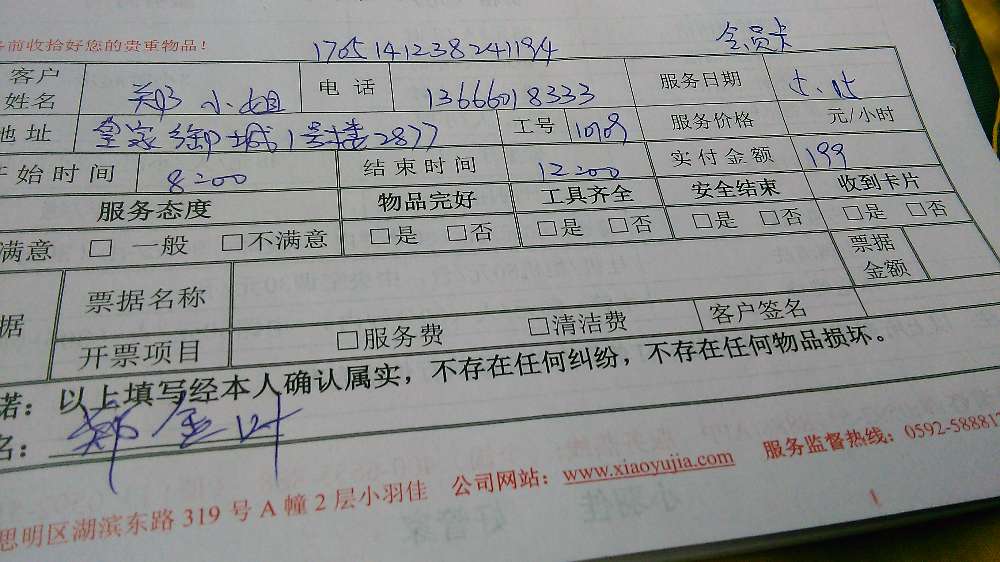 前收拾好您的贵重物品!
1705141238241194 会员卡
客户姓名 郑小姐 电话 13666018333 服务日期
地址 皇家御城1号楼2877 工号 服务价格 元/小时
开始时间 8:00 结束时间 12:00 实付金额 199
服务态度 物品完好 工具齐全 安全结束 收到卡片
满意 □ 一般 □不满意 □是 □否 □是 □否 □是 □否 □是 □否
据 票据名称 票据金额
开票项目 □服务费 □清洁费 客户签名
诺:以上填写经本人确认属实,不存在任何纠纷,不存在任何物品损坏。
名:郑
思明区湖滨东路 319 号 A 幢 2 层小羽佳 公司网站:www.xiaoyujia.com 服务监督热线:0592-588812
1